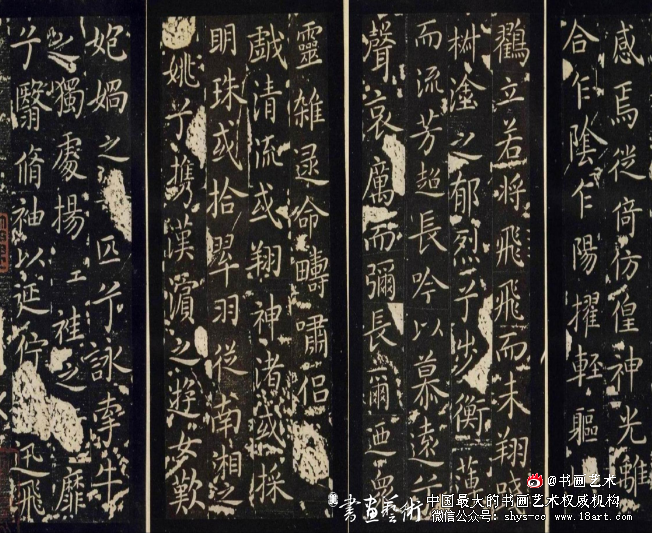 感焉徙倚仿偟神光離
合乍陰乍陽擢輕軀
鸛立若將飛飛而未翔踐
椒塗之郁烈兮步衡薄
而流芳超長吟以慕遠兮
聲哀厲而彌長爾迺眾
靈雜遝命疇嘯侶
戲清流或翔神渚或採
明珠或拾翠羽從南湘之
姚兮攜漢濱之遊女歎
妑媧之匹兮詠牽牛
之獨處揚袿之靡
兮翳脩袖以延佇迅飛
@书画艺术
書畫藝術
中国最大的书画艺术权威机构
微信公众号: shys-cc www.18art.com